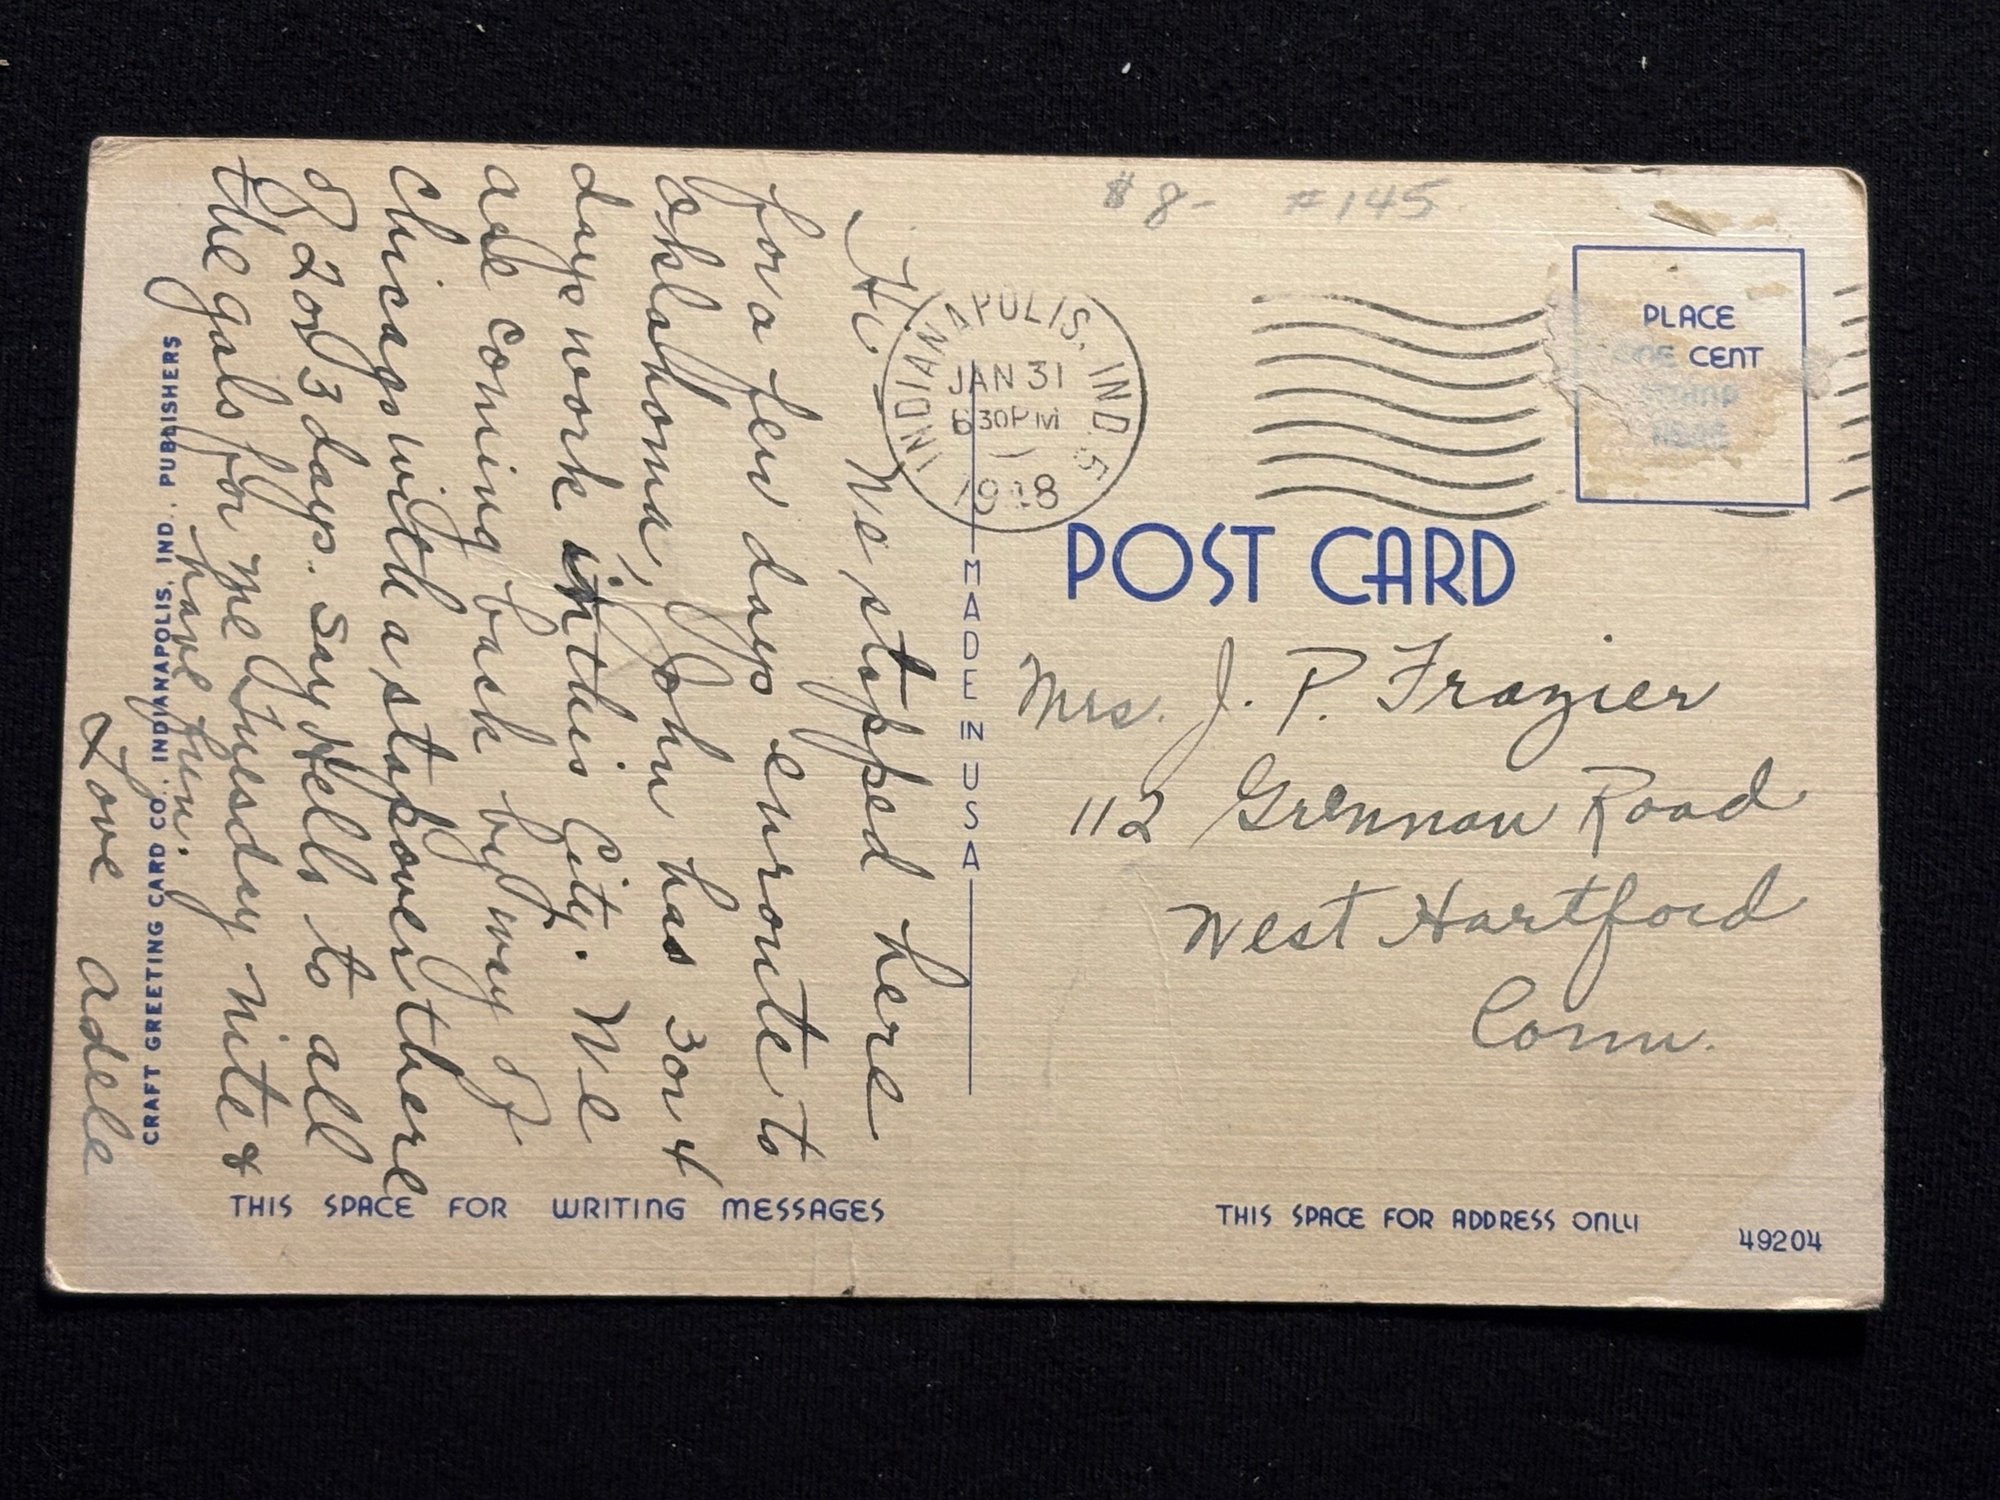 $8- #145
INDIANAPOLIS, IND. 5
JAN 31
6 30 PM
1948
PLACE
ONE CENT
STAMP
HERE
POST CARD
MADE IN USA
Mrs. J. P. Frazier
112 Grennan Road
West Hartford
Conn.
Hi - We stopped here
for a few days enroute to
Oaklahoma, John has 3 or 4
days work in this City. We
are coming back by way of
Chicago with a stopover there
of 2 or 3 days. Say Hello to all
the gals for me Tuesday nite &
have fun.
Love Adele
CRAFT GREETING CARD CO., INDIANAPOLIS, IND., PUBLISHERS
THIS SPACE FOR WRITING MESSAGES
THIS SPACE FOR ADDRESS ONLY
49204